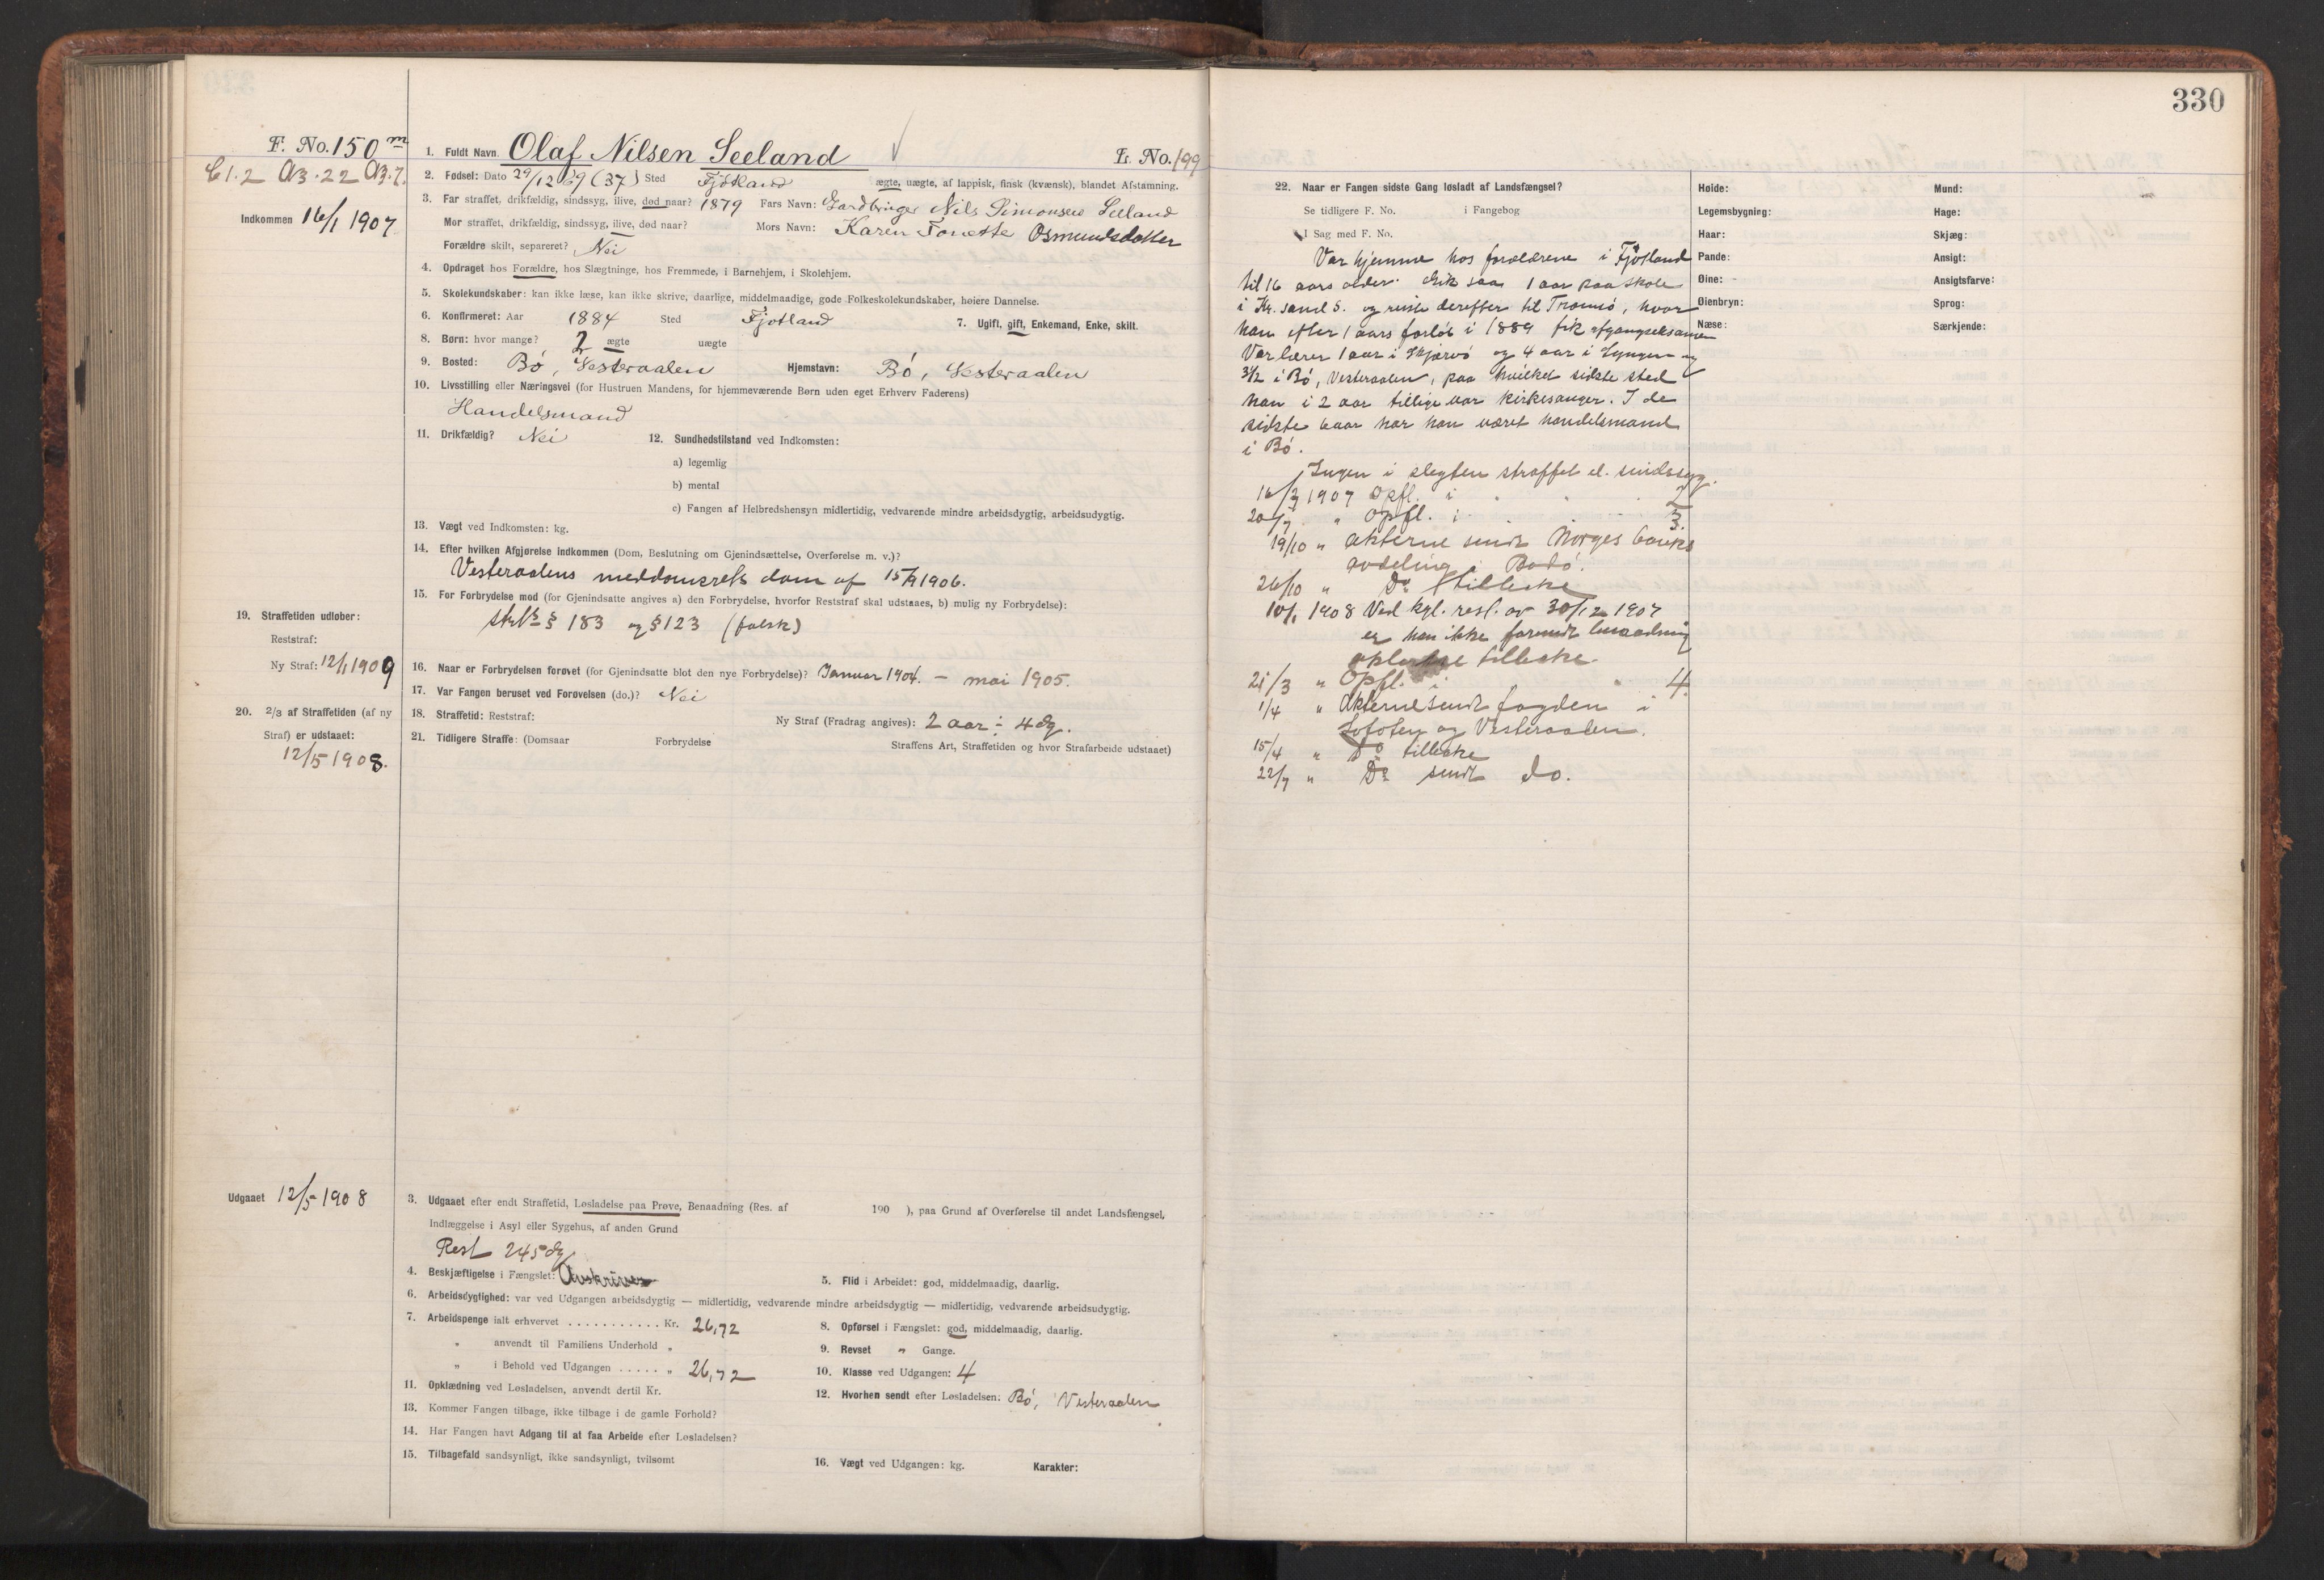 330
F. No. 150 m
Cl. 2 A3. 22 A3. 7.
Indkommen 16/1 1907
1. Fuldt Navn Olaf Nilsen Seeland L. No. 199
2. Fødsel: Dato 29/12 69 (37) Sted Fjotland ægte, uægte, af lappisk, finsk (kvænsk), blandet Afstamning.
3. Far straffet, drikfældig, sindssyg, ilive, død naar? 1879 Fars Navn: Gardbruger Nils Simonsen Seeland
Mor straffet, drikfældig, sindssyg, ilive, død naar? Mors Navn: Karen Tonette Osmundsdatter
Forældre skilt, separeret? Nei
4. Opdraget hos Forældre, hos Slægtninge, hos Fremmede, i Barnehjem, i Skolehjem.
5. Skolekundskaber: kan ikke læse, kan ikke skrive, daarlige, middelmaadige, gode Folkeskolekundskaber, høiere Dannelse.
6. Konfirmeret: Aar 1884 Sted Fjotland 7. Ugift, gift, Enkemand, Enke, skilt.
8. Børn: hvor mange? 2 ægte uægte
9. Bosted: Bø, Vesteraalen Hjemstavn: Bø, Vesteraalen
10. Livsstilling eller Næringsvei (for Hustruen Mandens, for hjemmeværende Børn uden eget Erhverv Faderens)
Handelsmand
11. Drikfældig? Nei 12. Sundhedstilstand ved Indkomsten:
a) legemlig
b) mental
c) Fangen af Helbredshensyn midlertidig, vedvarende mindre arbeidsdygtig, arbeidsudygtig.
13. Vægt ved Indkomsten: kg.
14. Efter hvilken Afgjørelse indkommen (Dom, Beslutning om Gjenindsættelse, Overførelse m. v.)?
Vesteraalens meddomsrets dom af 15/9 1906.
15. For Forbrydelse mod (for Gjenindsatte angives a) den Forbrydelse, hvorfor Reststraf skal udstaaes, b) mulig ny Forbrydelse):
§ 183 og § 123 (falsk)
19. Straffetiden udløber:
Reststraf:
Ny Straf: 12/1 1909
16. Naar er Forbrydelsen forøvet (for Gjenindsatte blot den nye Forbrydelse)? Januar 1904. — mai 1905.
17. Var Fangen beruset ved Forøvelsen (do.)? Nei
20. 2/3 af Straffetiden (af ny
Straf) er udstaaet:
12/5 1908.
18. Straffetid: Reststraf: Ny Straf (Fradrag angives): 2 aar ÷ 4 dg.
21. Tidligere Straffe: (Domsaar Forbrydelse Straffens Art, Straffetiden og hvor Strafarbeide udstaaet)
Udgaaet 12/5 1908
3. Udgaaet efter endt Straffetid, Løsladelse paa Prøve, Benaadning (Res. af 190 ), paa Grund af Overførelse til andet Landsfængsel,
Indlæggelse i Asyl eller Sygehus, af anden Grund
Rest 245 dg
4. Beskjæftigelse i Fængslet: Avskriver 5. Flid i Arbeidet: god, middelmaadig, daarlig.
6. Arbeidsdygtighed: var ved Udgangen arbeidsdygtig — midlertidig, vedvarende mindre arbeidsdygtig — midlertidig, vedvarende arbeidsudygtig.
7. Arbeidspenge ialt erhvervet . . . . . . . . . . . Kr. 26,72 8. Opførsel i Fængslet: god, middelmaadig, daarlig.
" anvendt til Familiens Underhold " 9. Revset " Gange.
" i Behold ved Udgangen . . . . . " 26,72 10. Klasse ved Udgangen: 4
11. Opklædning ved Løsladelsen, anvendt dertil Kr. 12. Hvorhen sendt efter Løsladelsen: Bø, Vesteraalen
13. Kommer Fangen tilbage, ikke tilbage i de gamle Forhold?
14. Har Fangen havt Adgang til at faa Arbeide efter Løsladelsen?
15. Tilbagefald sandsynligt, ikke sandsynligt, tvilsomt
16. Vægt ved Udgangen: kg. Karakter:
22. Naar er Fangen sidste Gang løsladt af Landsfængsel?
Se tidligere F. No. i Fangebog
I Sag med F. No.
Var hjemme hos forældrene i Fjotland
til 16 aars alder. Gik saa 1 aar paa skole
i Kr.sand S. og reiste derefter til Tromsø, hvor
han efter 1 aars forløb i 1889 fik afgangseksamen
Var lærer 1 aar i Skjervø og 4 aar i Lyngen og
3½ i Bø, Vesteraalen, paa hvilket sidste sted
han i 2 aar tillige var kirkesanger. I de
sidste 6 aar har han været handelsmand
i Bø.
Ingen i slegten straffet el. sindssyg.
16/3 1907 Opfl. i " " 2
20/7 " Opfl. i " " 3.
19/10 " Akterne sendt Norges banks
avdeling i Bodø.
26/10 " Do tilbake
10/1 1908 Ved kgl. resl. av 30/12 1907
er han ikke forundt benaadning
tilbake.
21/3 " Opfl. i " 4.
1/4 " Akterne sendt fogden i
Lofoten og Vesteraalen.
15/4 " Do tilbake
22/7 " Do sendt do.
Høide:
Legemsbygning:
Haar:
Pande:
Øine:
Øienbryn:
Næse:
Mund:
Hage:
Skjæg:
Ansigt:
Ansigtsfarve:
Sprog:
Særkjende: